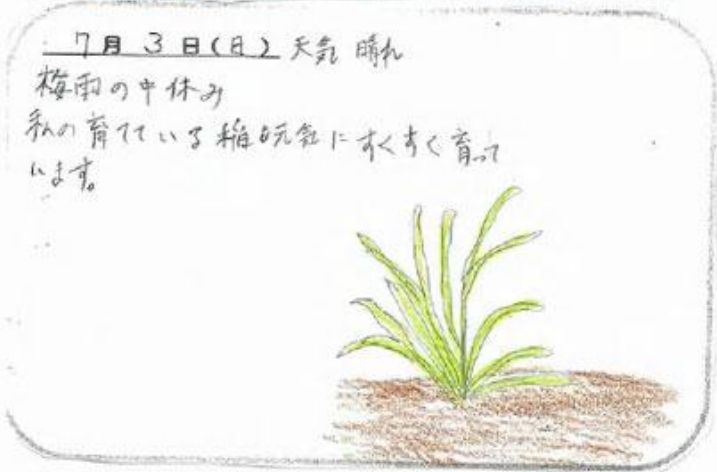 7月3日(日) 天気 晴れ
梅雨の中休み
私の育てている稲も元気にすくすく育って
います。